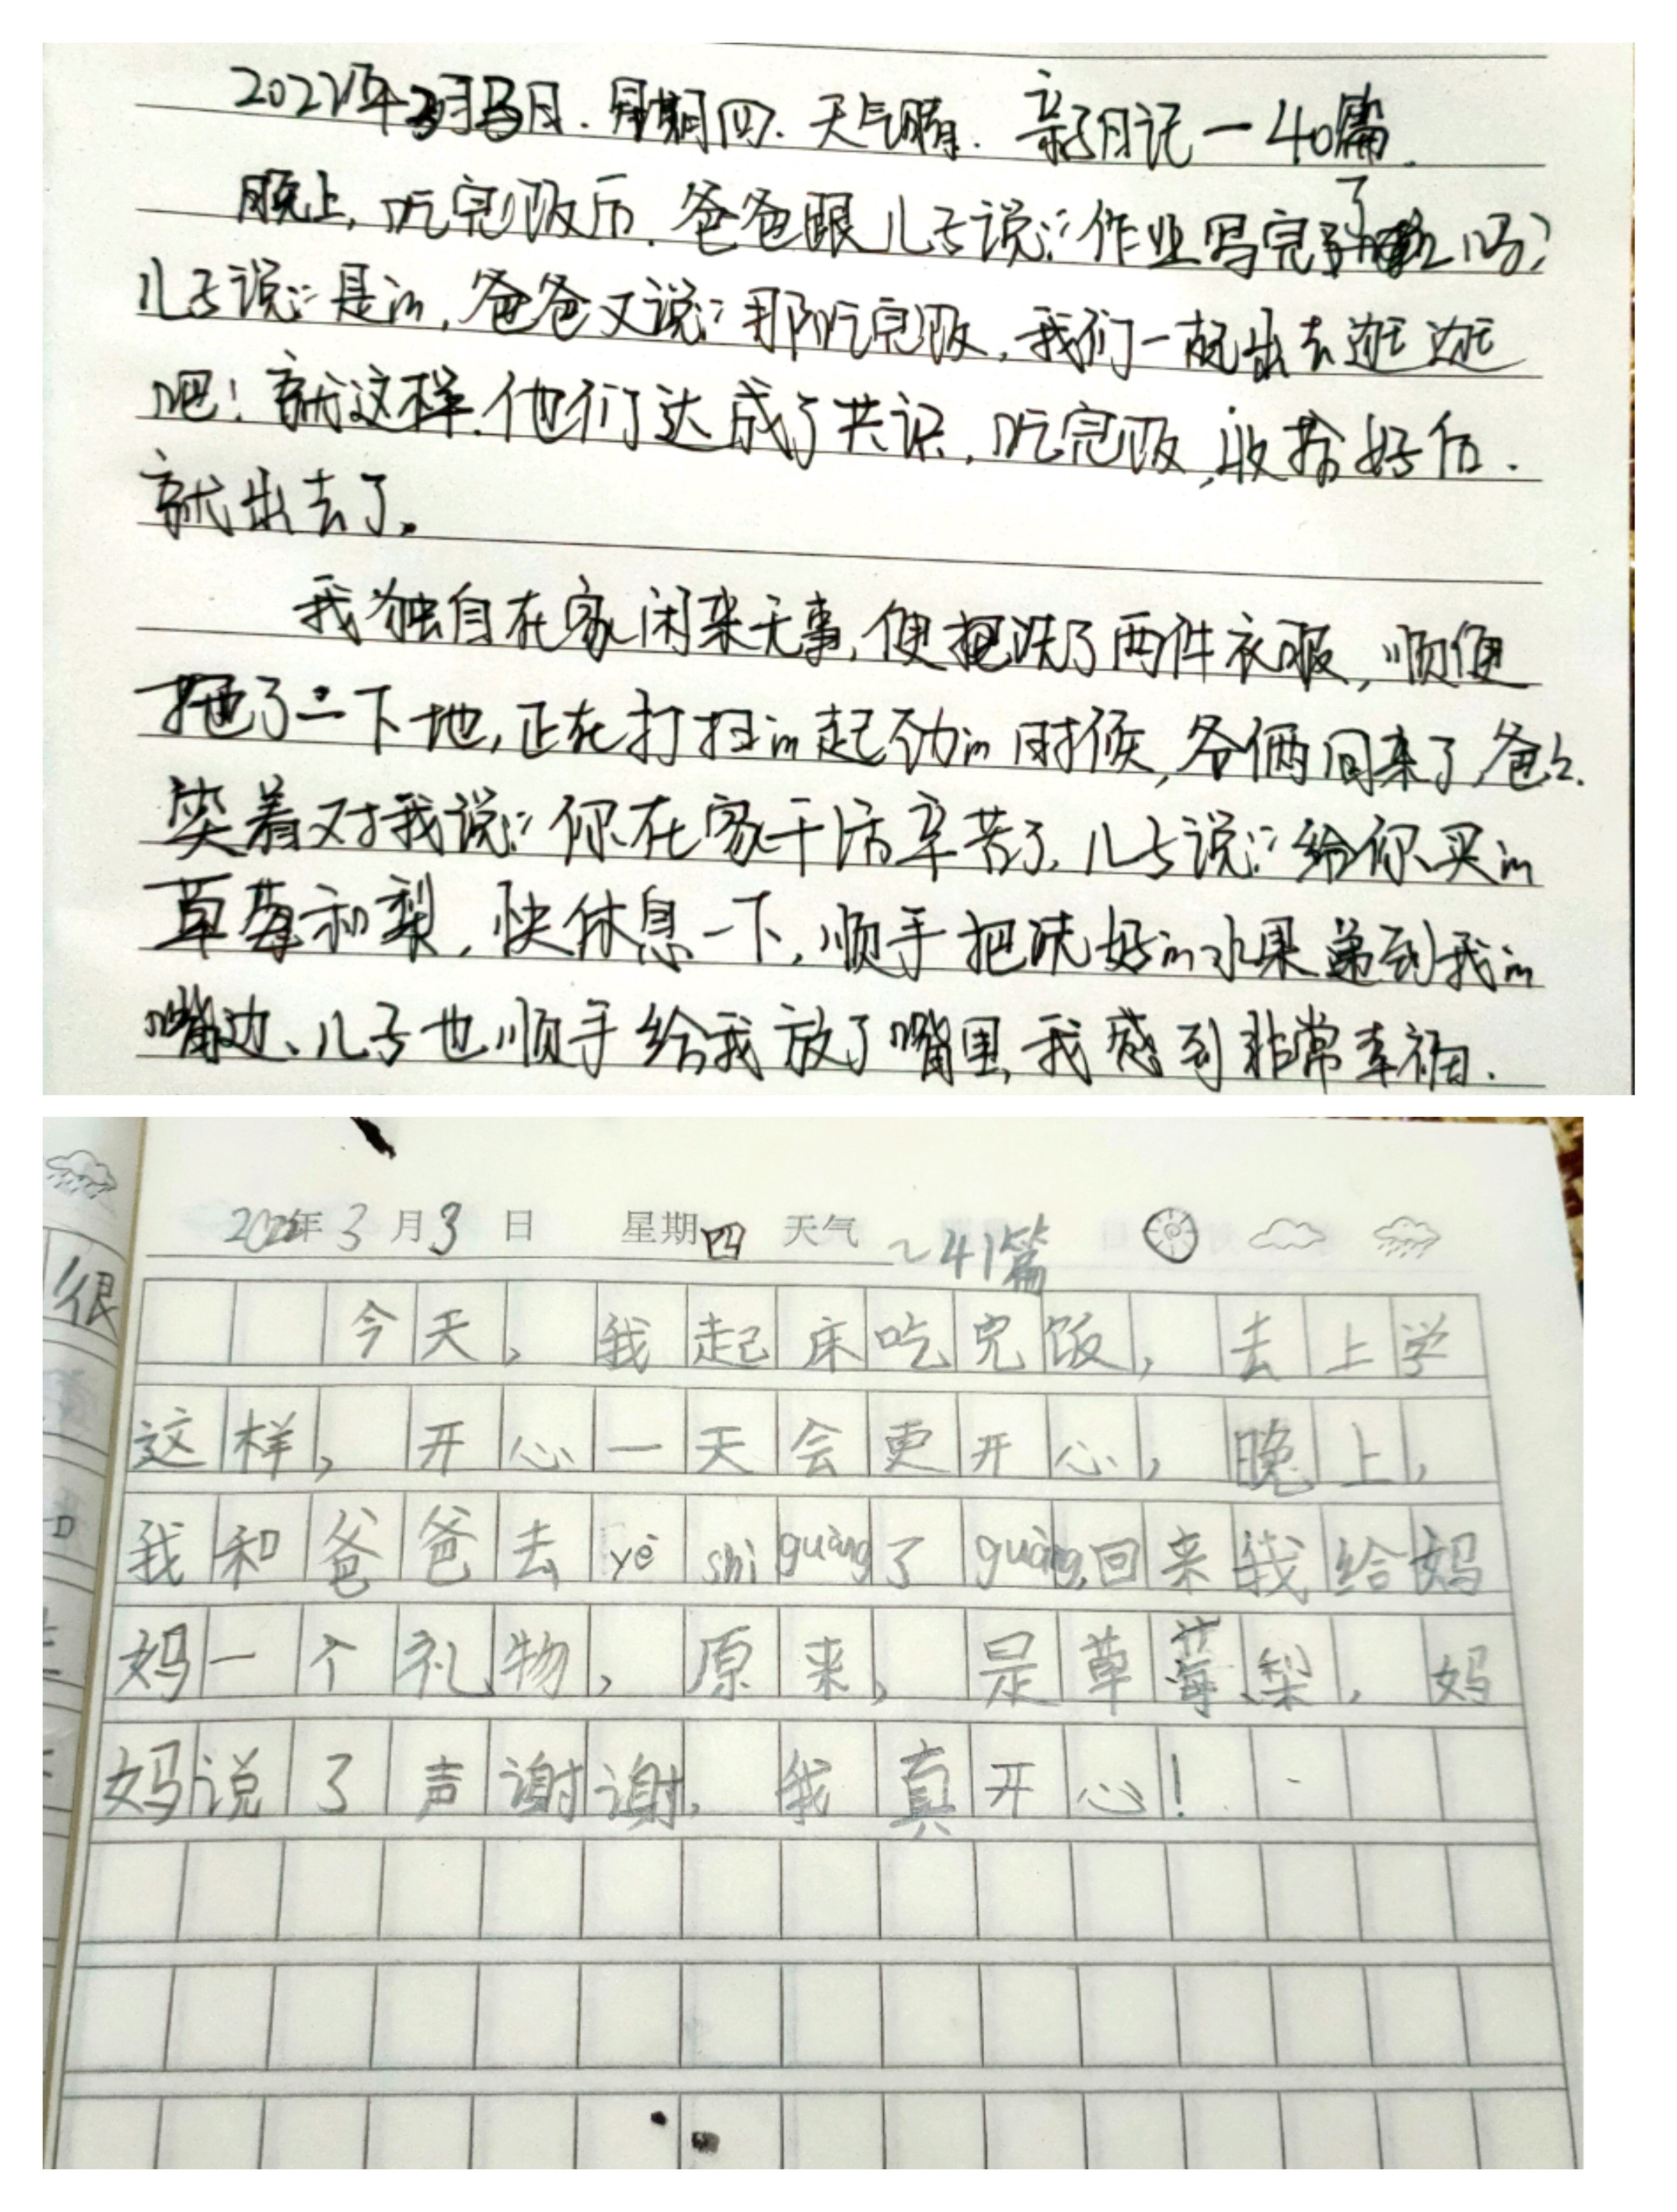 2022年3月3日.星期四.天气晴.亲子日记一40篇.
晚上,吃完饭后.爸爸跟儿子说:“作业写完了吗?
儿子说:“是的,爸爸又说:“那吃完饭,我们一起出去逛逛
吧!就这样.他们达成了共识,吃完饭,收拾好后.
就出去了。
我独自在家闲来无事,便把洗了两件衣服,顺便
拖了一下地,正在打扫的起劲的时候,爷俩回来了,爸爸.
笑着对我说:“你在家干活辛苦了,儿子说:“给你买的
草莓和梨,快休息一下,顺手把洗好的水果递到我的
嘴边、儿子也顺手给我放了嘴里,我感到非常幸福.
很
2022年3月3日 星期四 天气 ~41篇
今天,我起床吃完饭,去上学
这样,开心一天会更开心,晚上,
我和爸爸去yè shì guàng了guàng,回来我给妈
妈一个礼物,原来,是草莓、梨,妈
妈说了声谢谢,我真开心!